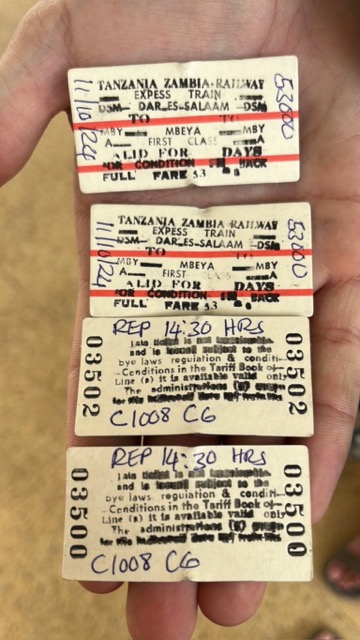 TANZANIA ZAMBIA-RAILWAY
EXPESS TRAIN
DSM DAR-ES-SALAAM DSM
TO TO
MBY MBEYA MBY
A FIRST CLASS A
ALID FOR DAYS
OR CONDITION BACK
FULL FARE 53
11/10/24
53000
TANZANIA ZAMBIA-RAILWAY
EXPESS TRAIN
DSM DAR-ES-SALAAM DSM
TO
MBEYA MBY
A FIRST A
ALID FOR DAYS
OR CONDITION BACK
FULL FARE 53
11/10/24
53000
REP 14:30 HRS
is not
and is issued subject to the
bye laws reguiation & conditi-
Conditions in the Tariff Book of
Line (s) it is available valid only
The administrations
for
C1008 C6
03502
03502
REP 14:30 HRS
is not
and is issued subject to the
bye laws reguiation & conditi-
Conditions in the Tariff Book of
Line (s) it is available valid only
The administrations
for
C1008 C6
03500
03500